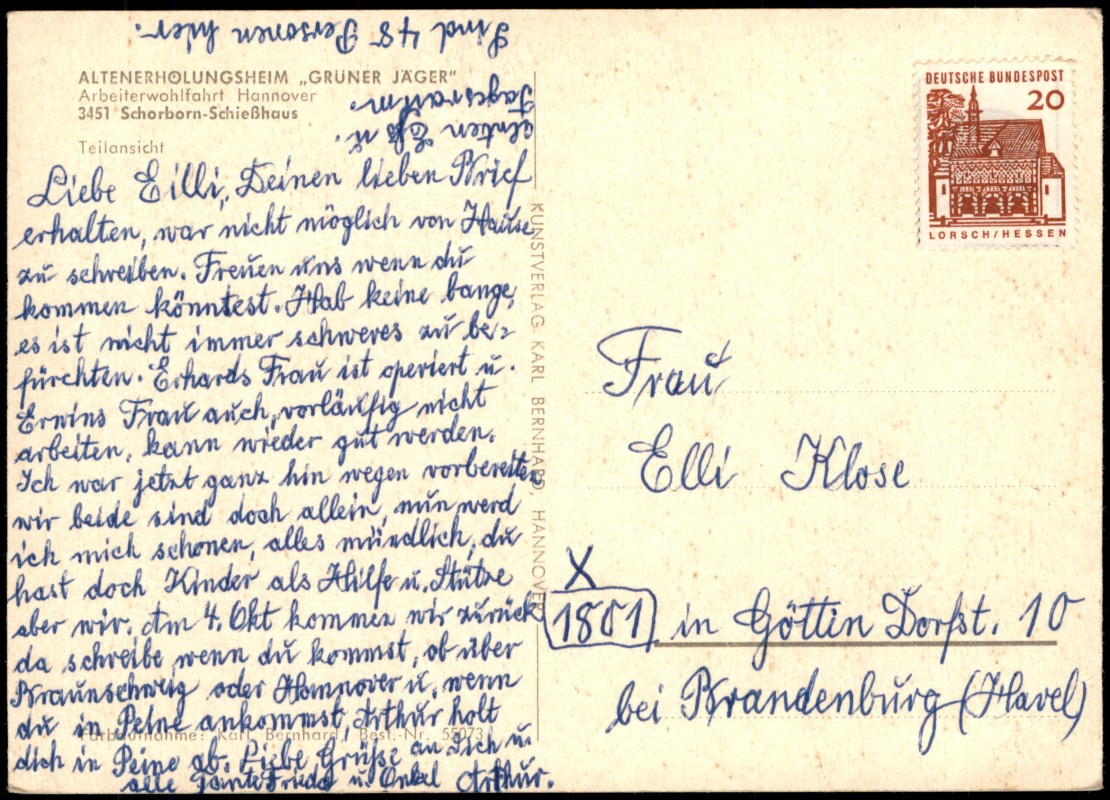 ALTENERHOLUNGSHEIM „GRÜNER JÄGER"
Arbeiterwohlfahrt Hannover
3451 Schorborn-Schießhaus
Teilansicht
Liebe Eilli, Deinen lieben Brief
erhalten, war nicht möglich von Hause
zu schreiben. Freuen uns wenn du
kommen könntest. Hab keine bange,
es ist nicht immer schweres zu be=
fürchten. Erhards Frau ist operiert u.
Erwins Frau auch, vorläufig nicht
arbeiten, kann wieder gut werden.
Ich war jetzt ganz hin wegen vorbereiten
wir beide sind doch allein, nun werd
ich mich schonen, alles mündlich, du
hast doch Kinder als Hilfe u. Stütze
aber wir. Am 4. Okt kommen wir zurück
da schreibe wenn du kommst, ob über
Braunschweig oder Hannover u. wenn
du in Peine ankommst, Arthur holt
dich in Peine ab. Liebe Grüße an Dich u.
alle Tante Frieda u. Onkel Arthur.
unten Eß u.
Tagesraum.
Sind 48 Personen hier.
Farbaufnahme: Karl Bernhard, Best.-Nr. 55073
KUNSTVERLAG KARL BERNHARD, HANNOVER
DEUTSCHE BUNDESPOST
20
LORSCH/HESSEN
Frau
Elli Klose
X
1801 in Göttin Dorfst. 10
bei Brandenburg (Havel)